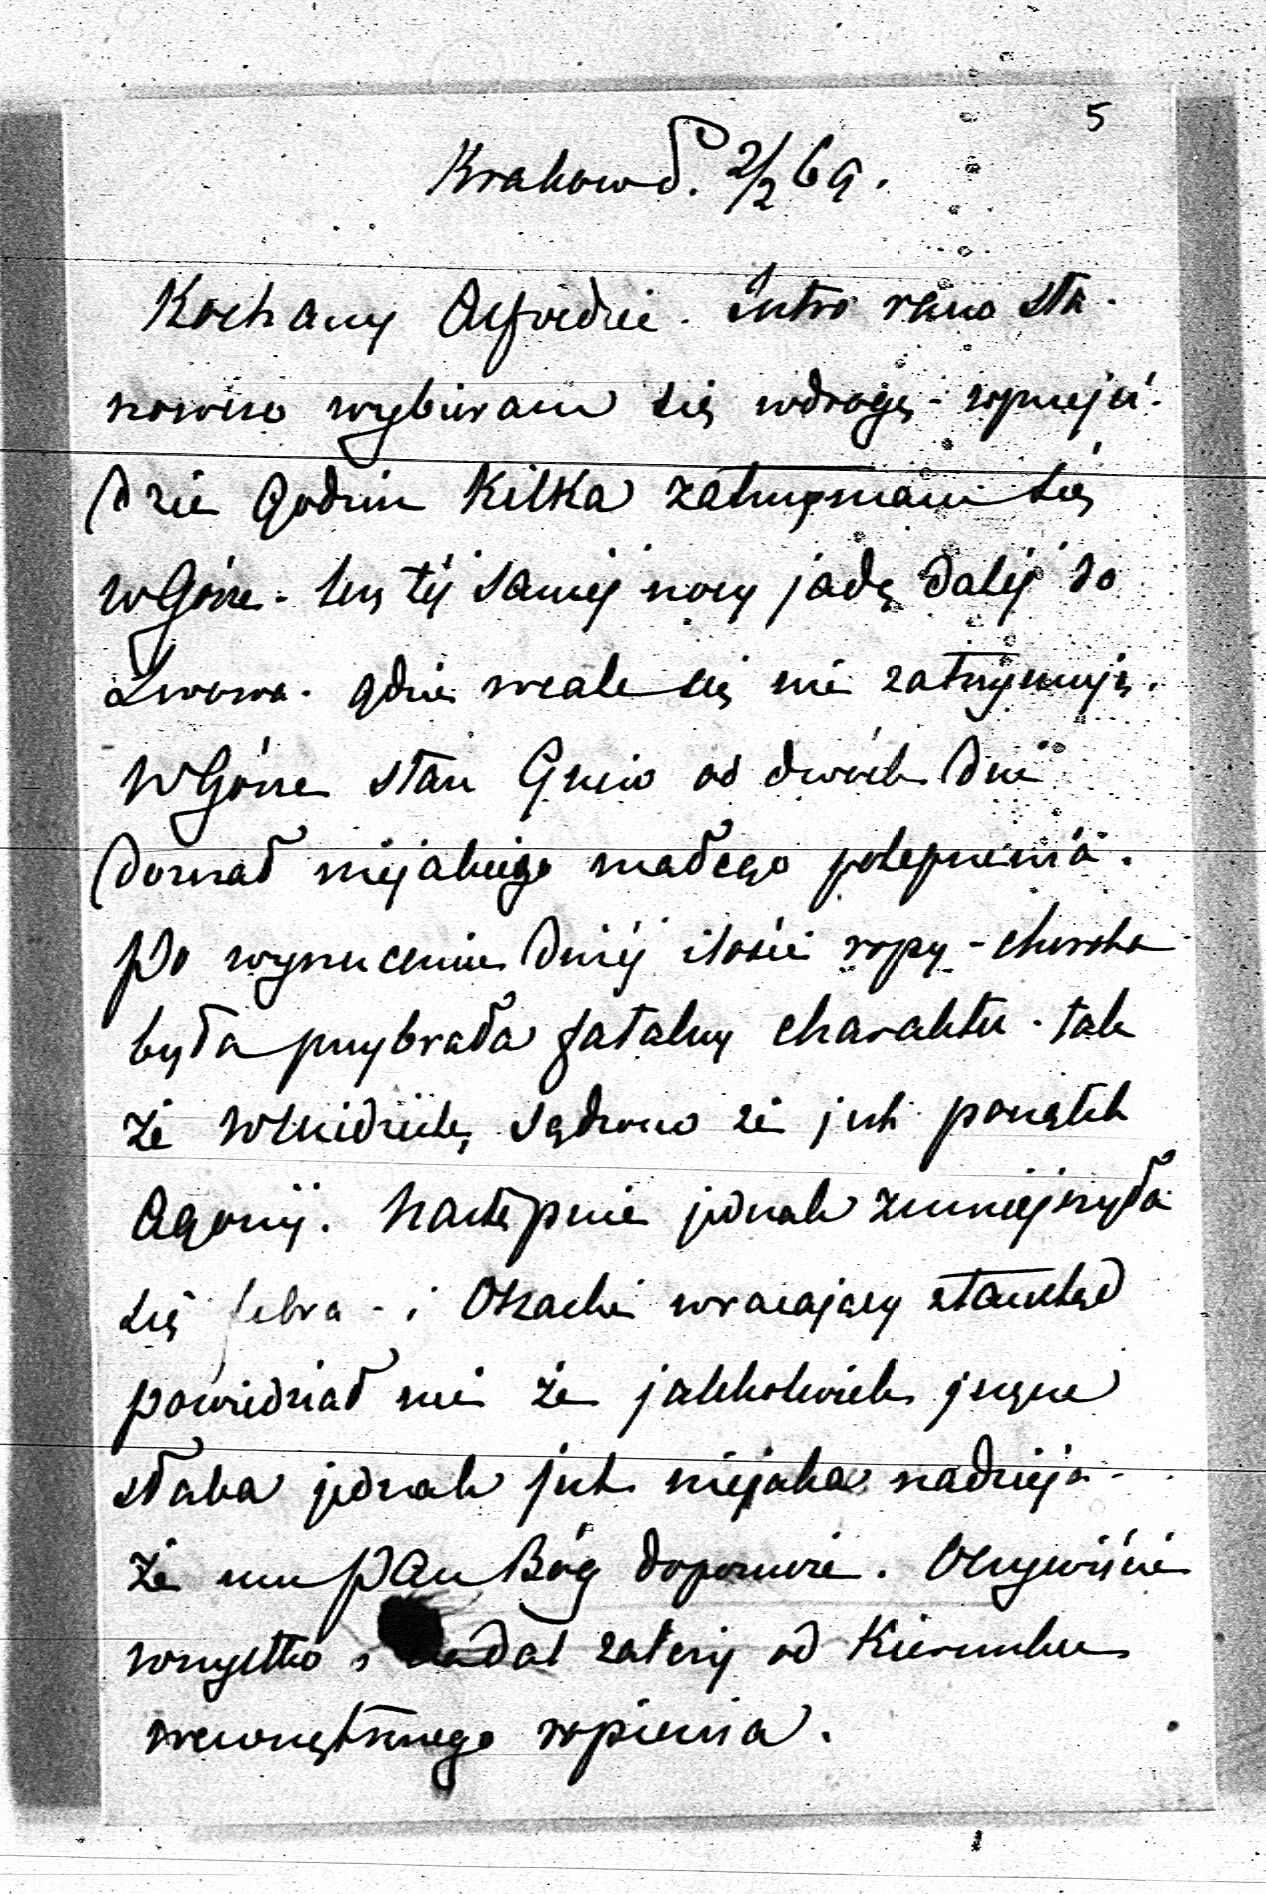 5
Krakow d. 2/2 69.
Kochany Alfredzie. Jutro rano sta-
nowczo wybieram się wdrogę - wprzeja-
dzie godzin kilka zatrzymam się
w Górze - lecz téj saméj nocy jadę daléj do
Lwowa. gdzie wcale się nie zatrzymuję.
W Górze stan Gucia od dwóch dni
doznał niejakiego małego polepszenia.
Po wyrzuceniu dużéj ilości ropy - choroba
była przybrała fatalny charakter - tak
że w Niedzielę sądzono że już początek
Agonij. Następnie jednak zmniejszyła
się febra - i wracający ztamtąd
powiedział mi że jakkolwiek jeszcze
słaba jednak już niejaka nadzieja -
że mu Pan Bóg dopomoże. Oczywiście
wszystko nadal zależy od kierunku
wewnętrznego ropienia.